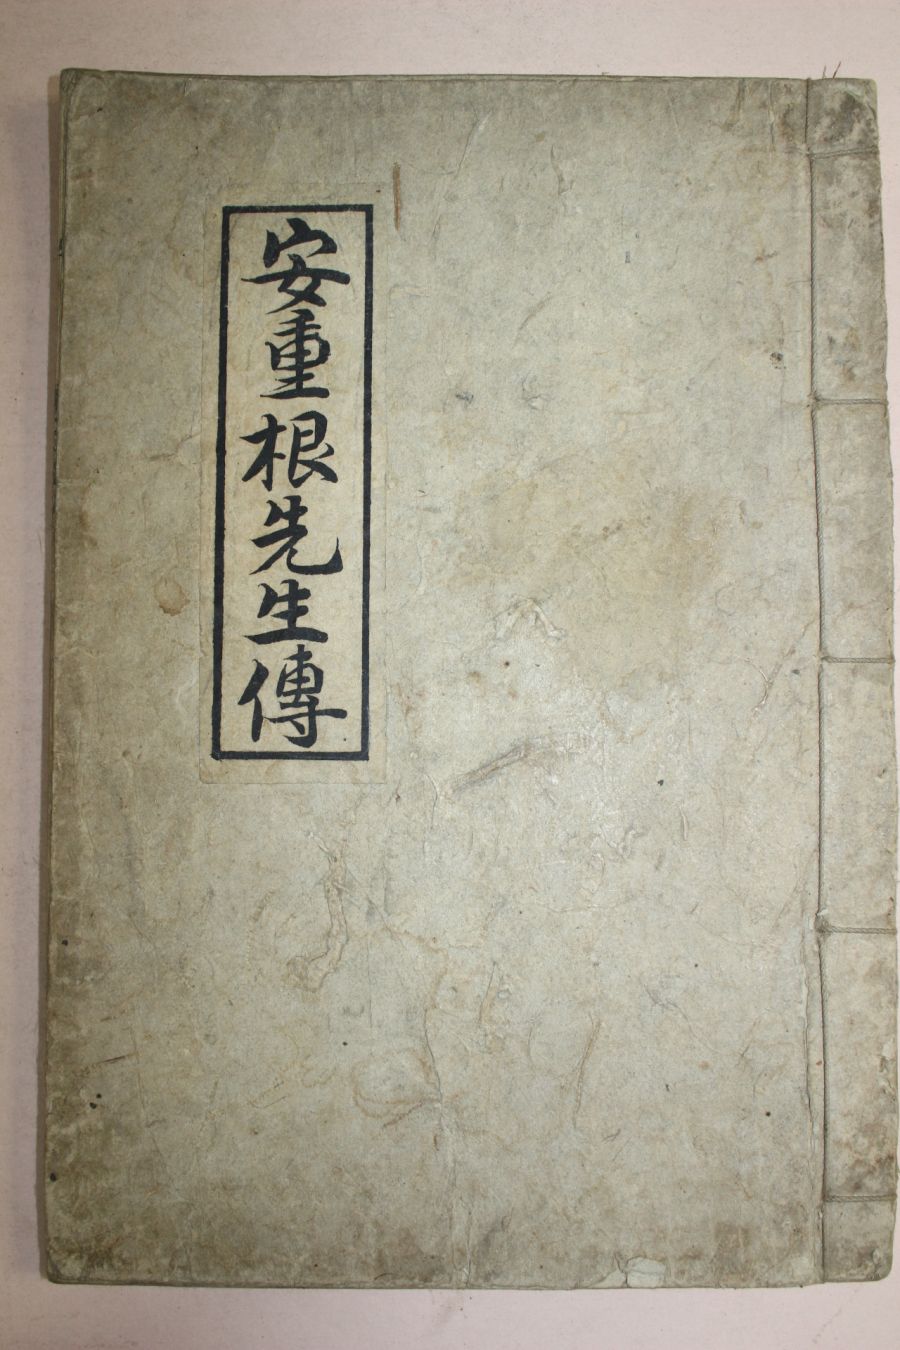 安重根先生傳